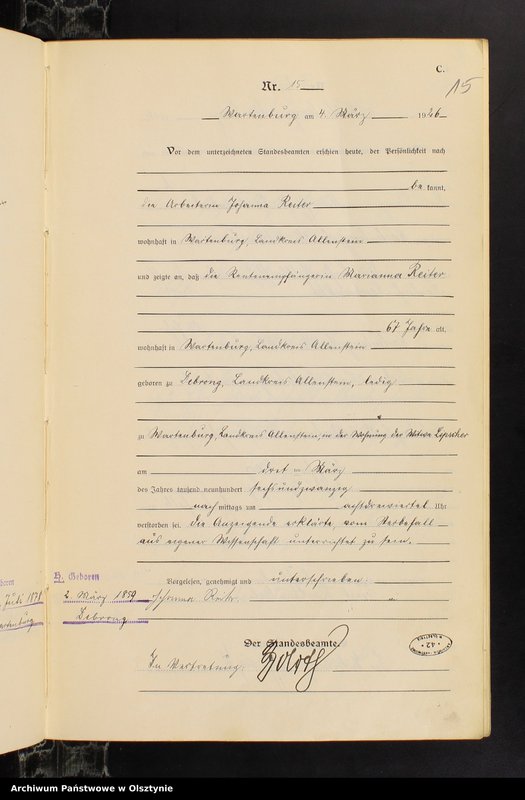 C.
15
Nr. 15
Wartenburg am 4. März 1926
Vor dem unterzeichneten Standesbeamten erschien heute, der Persönlichkeit nach
be kannt,
die Arbeiterin Johanna Reiter
wohnhaft in Wartenburg, Landkreis Allenstein
und zeigte an, daß die Rentenempfängerin Marianna Reiter
67 Jahre alt,
wohnhaft in Wartenburg, Landkreis Allenstein
geboren zu Debrong, Landkreis Allenstein, ledig
zu Wartenburg, Landkreis Allenstein, in der Wohnung der Witwe
am drei ten März
des Jahres tausend neunhundert sechsundzwanzig
nach mittags um achtdreiviertel Uhr
verstorben sei. Die Anzeigende erklärte, vom Sterbefall
aus eigener Wissenschaft unterrichtet zu sein.
Vorgelesen, genehmigt und unterschrieben:
Johanna Reiter
Der Standesbeamte.
In Vertretung:
H. Geboren
2. März 1859
Debrong
boren
Juli 1871
artenburg
42
Archiwum Państwowe w Olsztynie